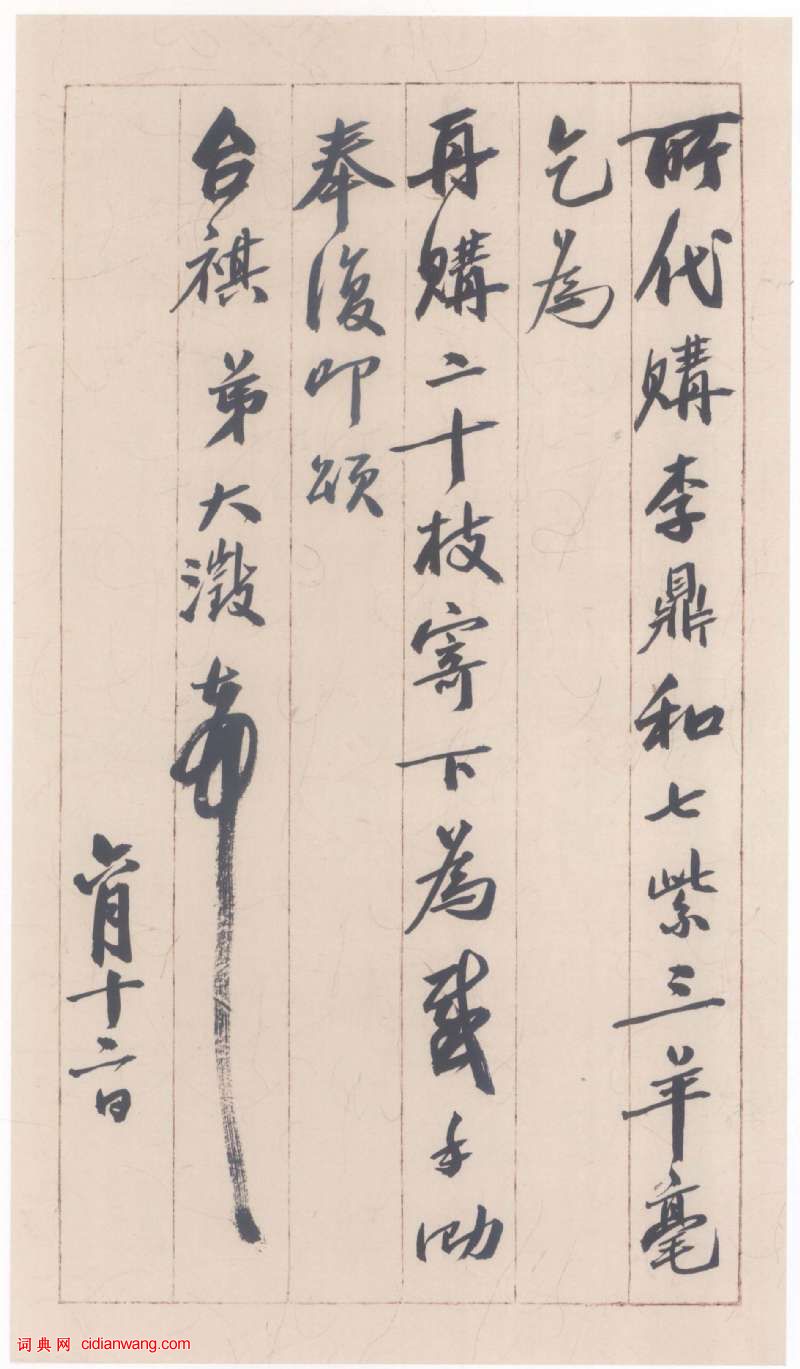 所代購李鼎和七紫三羊毫
乞為
再購二十枝寄下為感手泐
奉復叩頌
台祺 弟大澂
六月十二日
词典网 cidianwang.com